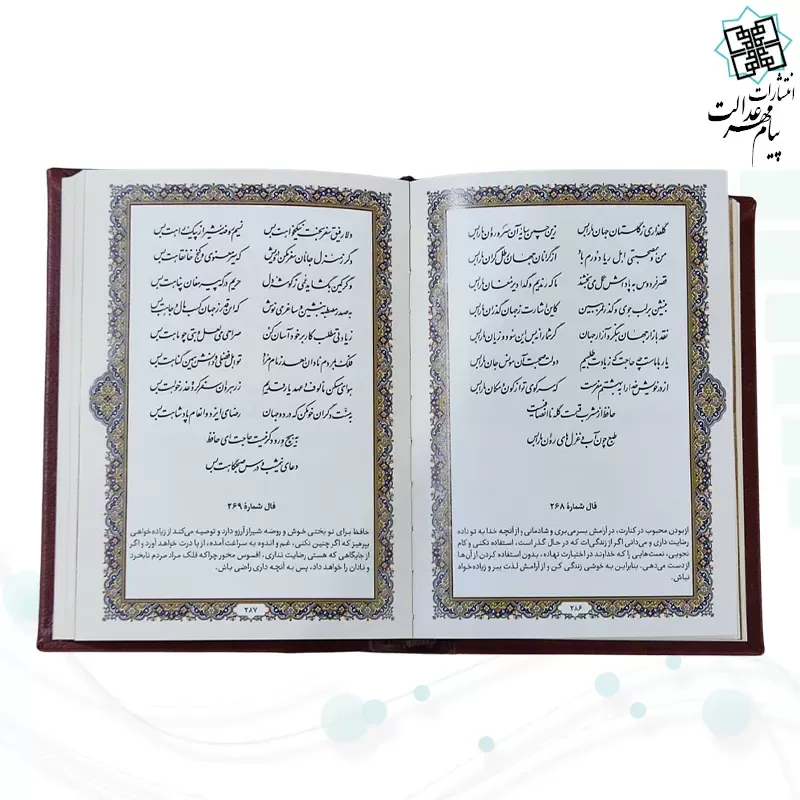 انتشارات
پیام مهر عدالت
گلعذاری ز گلستان جهان ما را بس
زین چمن سایه آن سرو روان ما را بس
من و همصحبتی اهل ریا دورم باد
از گرانان جهان رطل گران ما را بس
قصر فردوس به پاداش عمل می‌بخشند
ما که رندیم و گدا دیر مغان ما را بس
بنشین بر لب جوی و گذر عمر ببین
کاین اشارت ز جهان گذرا ما را بس
نقد بازار جهان بنگر و آزار جهان
گر شما را نه بس این سود و زیان ما را بس
یار با ماست چه حاجت که زیادت طلبیم
دولت صحبت آن مونس جان ما را بس
از در خویش خدا را به بهشتم مفرست
که سر کوی تو از کون و مکان ما را بس
حافظ از مشرب قسمت گله ناانصافیست
طبع چون آب و غزل‌های روان ما را بس
فال شمارهٔ ۲۶۸
ازبودن محبوب در کنارت، در آرامش بسر می‌بری و شادمانی و از آنچه خدا به تو داده
رضایت داری و می‌دانی اگر از زندگی‌ات که در حال گذر است، استفاده نکنی و کام
نجویی، نعمت‌هایی را که خداوند در اختیارت نهاده، بدون استفاده کردن از آن‌ها
از دست می‌دهی، بنابراین به خوشی زندگی کن و از آرامش لذت ببر و زیاده خواه
نباش.
۲۸۶
دلا رفیق سفر بخت نیکخواهت بس
نسیم روضه شیراز پیک راهت بس
دگر ز منزل جانان سفر مکن درویش
که سیر معنوی و کنج خانقاهت بس
وگر کمین بگشاید غمی ز گوشه دل
حریم درگه پیر مغان پناهت بس
به صدر مصطبه بنشین و ساغر می نوش
که این قدر ز جهان کسب مال و جاهت بس
زیادتی مطلب کار بر خود آسان کن
صراحی می لعل و بتی چو ماهت بس
فلک به مردم نادان دهد زمام مراد
تو اهل فضلی و دانش همین گناهت بس
هوای مسکن مألوف و عهد یار قدیم
ز رهروان سفرکرده عذرخواهت بس
به منت دگران خو مکن که در دو جهان
رضای ایزد و انعام پادشاهت بس
به هیچ ورد دگر نیست حاجت ای حافظ
دعای نیم‌شب و درس صبحگاهت بس
فال شمارهٔ ۲۶۹
حافظ برای تو بختی خوش و روضه شیراز آرزو دارد و توصیه می‌کند از زیاده‌خواهی
بپرهیز که اگر چنین نکنی، غم و اندوه به سراغت آمده، از پا درت خواهد آورد و اگر
از جایگاهی که هستی رضایت نداری، افسوس مخور چراکه فلک مراد مردم نابخرد
و نادان را خواهد داد، پس به آنچه داری راضی باش.
۲۸۷